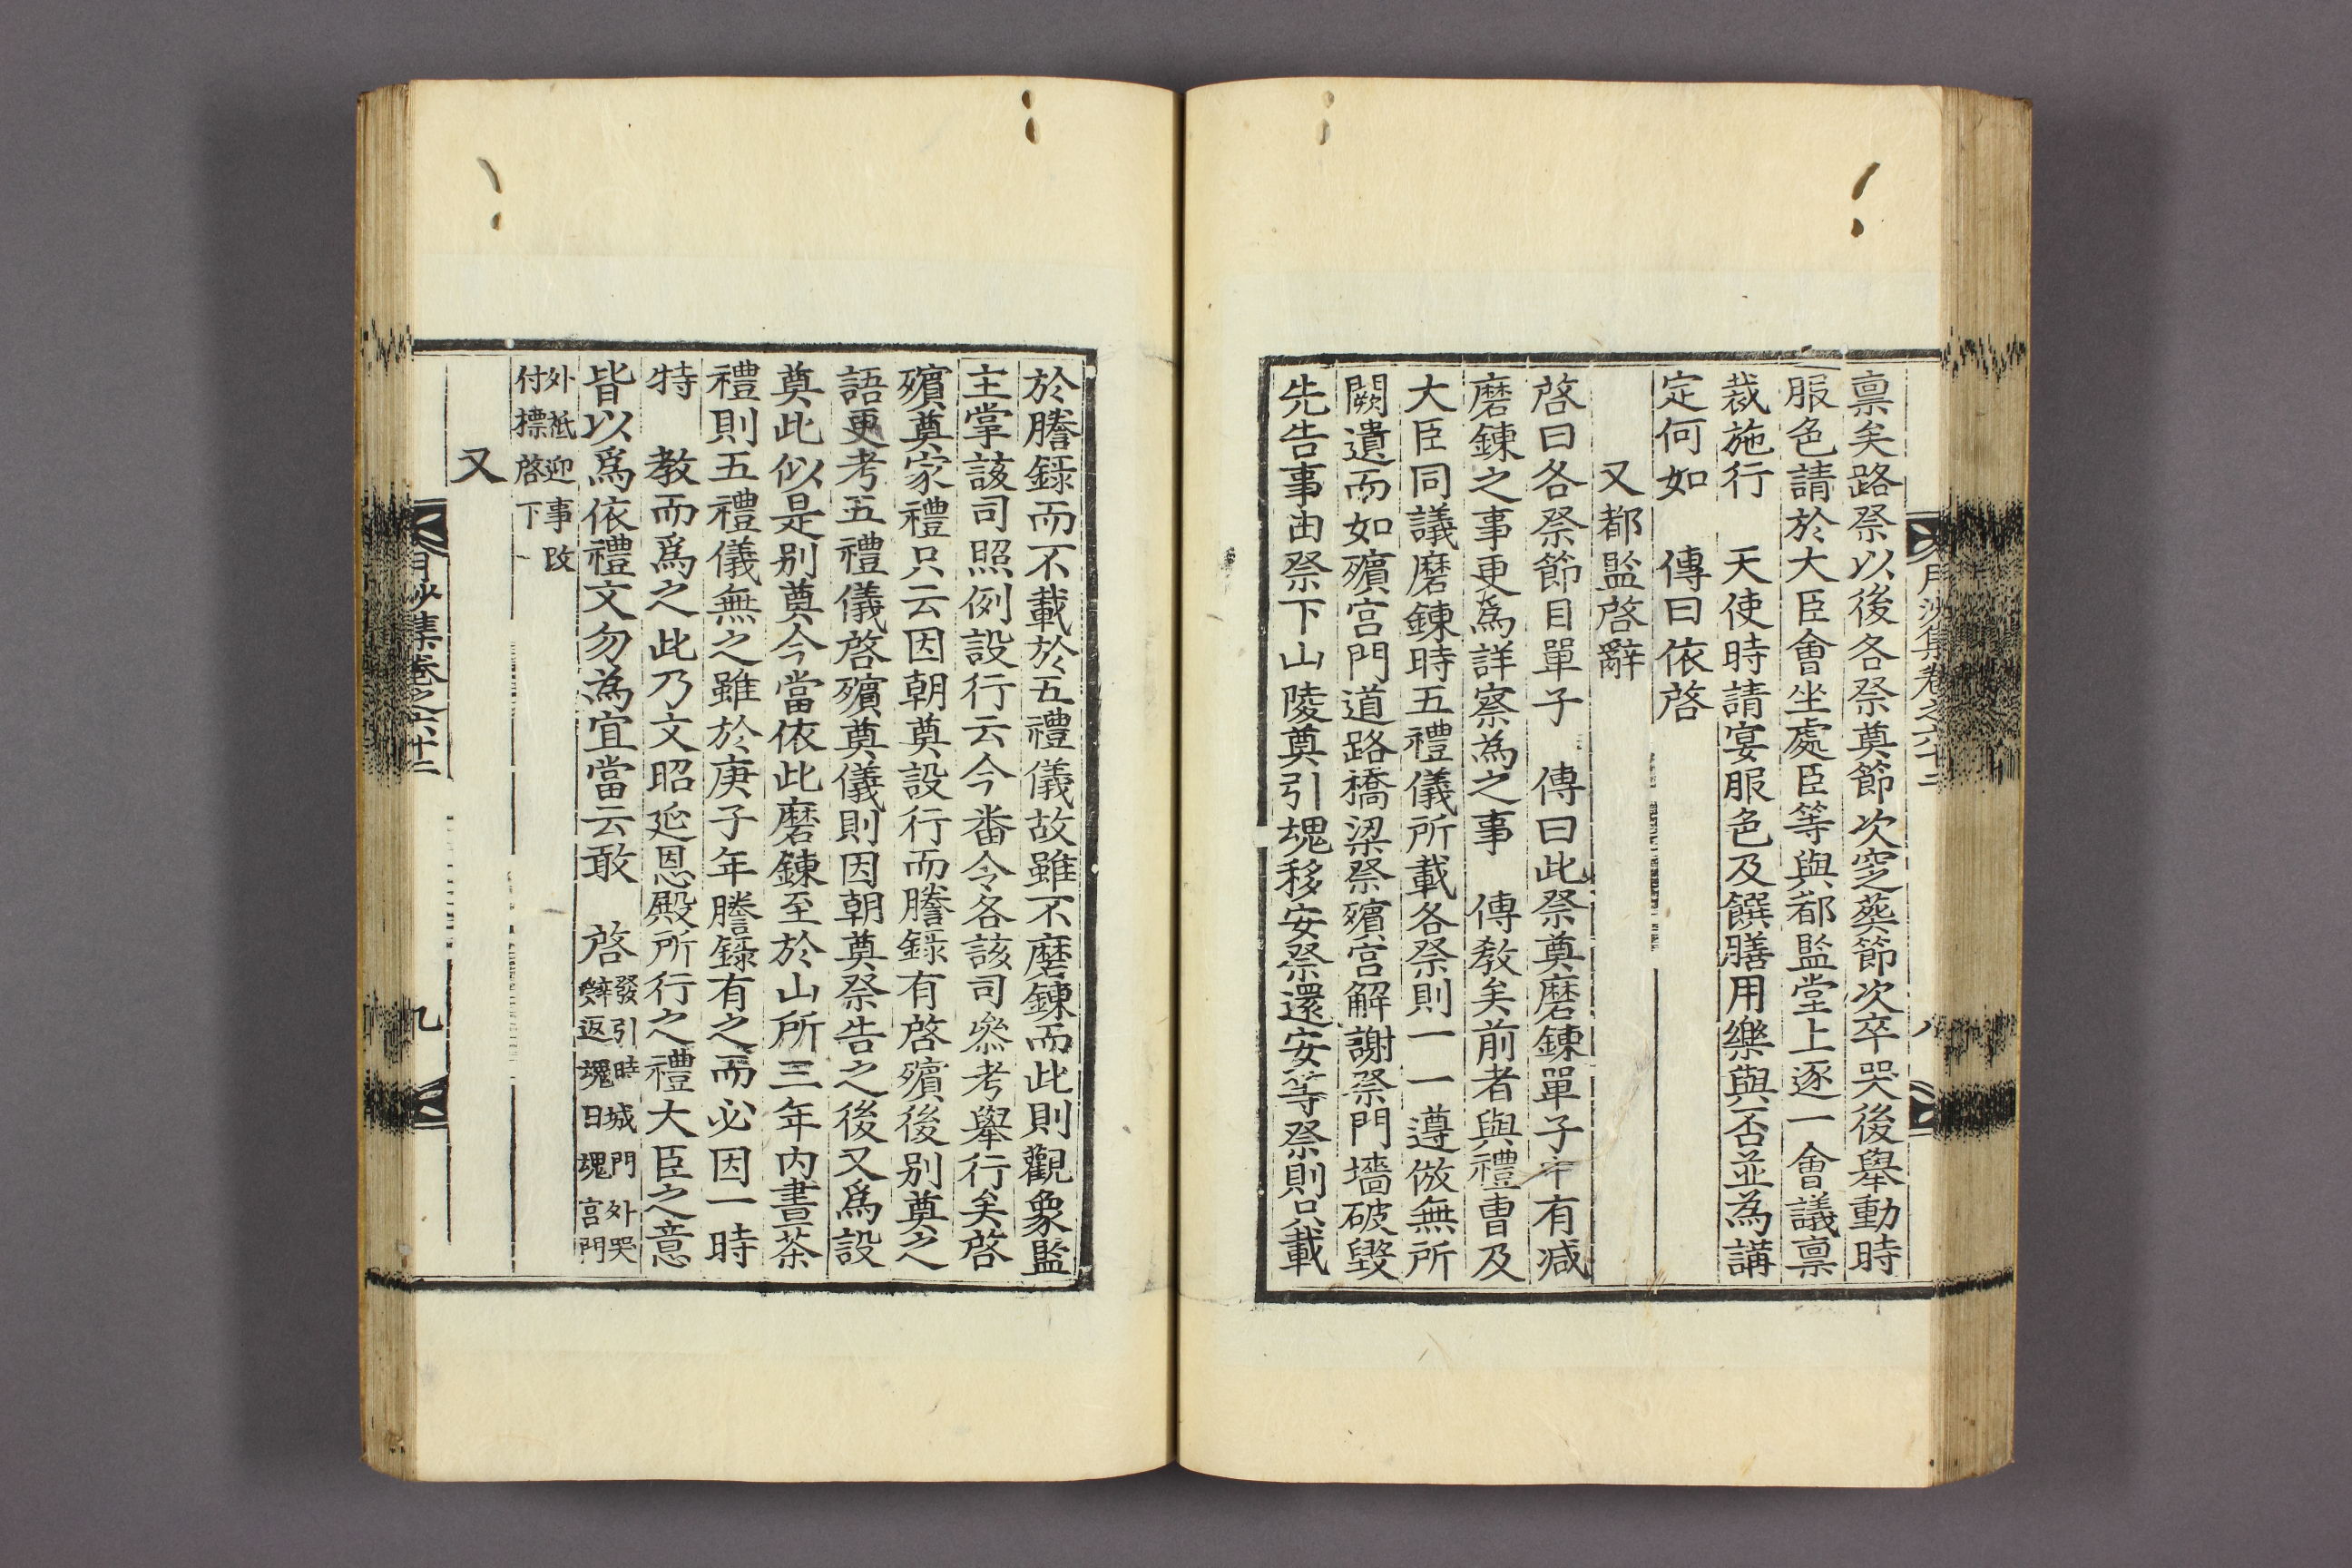 月沙集卷之六十二
八
禀矣路祭以後各祭奠節次窆葬節次卒哭後擧動時
服色請於大臣會坐處臣等與都監堂上逐一會議禀
裁施行　天使時請宴服色及饌膳用樂與否並為講
定何如　傳曰依啓
又都監啓辭
啓曰各祭節目單子　傳曰此祭奠磨鍊單子中有减
磨鍊之事更為詳察為之事　傳教矣前者與禮曹及
大臣同議磨鍊時五禮儀所載各祭則一一遵倣無所
闕遺而如殯宫門道路橋梁祭殯宫解謝祭門墻破毀
先告事由祭下山陵奠引魂移安祭還安等祭則只載
於謄録而不載於五禮儀故雖不磨鍊而此則觀象監
主掌該司照例設行云今番令各該司叅考擧行矣啓
殯奠家禮只云因朝奠設行而謄録有啓殯後别奠之
語更考五禮儀啓殯奠儀則因朝奠祭告之後又爲設
奠此似是别奠今當依此磨鍊至於山所三年内晝茶
禮則五禮儀無之雖於庚子年謄録有之而必因一時
特　教而爲之此乃文昭延恩殿所行之禮大臣之意
皆以爲依禮文勿為宜當云敢　啓發引時城門外哭
辭返魂日魂宫門
外祗迎事改
付標啓下
又
月沙集卷之六十二
九